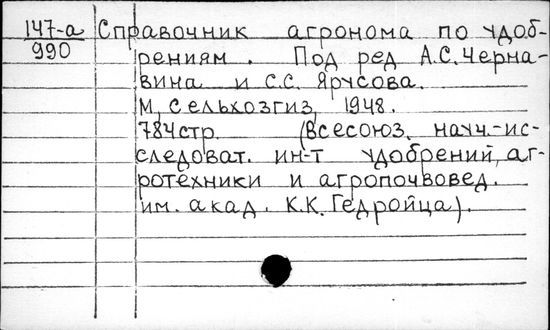 147-а Справочник агронома по удоб-
990 рениям. Под ред А.С. Черна-
вина и С.С. Ярусова.
М, Сельхозгиз, 1948.
784стр. (Всесоюз. науч.-ис-
следоват. ин-т удобрений, аг-
ротехники и агропочвовед.
им. акад. К.К. Гедройца).